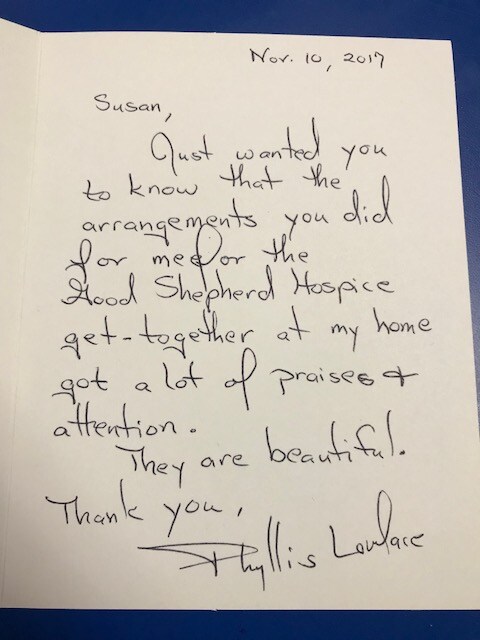 Nov. 10, 2017
Susan,
Just wanted you
to know that the
arrangements you did
for me for the
Good Shepherd Hospice
get-together at my home
got a lot of praises &
attention.
They are beautiful.
Thank you,
Phyllis Lovlace